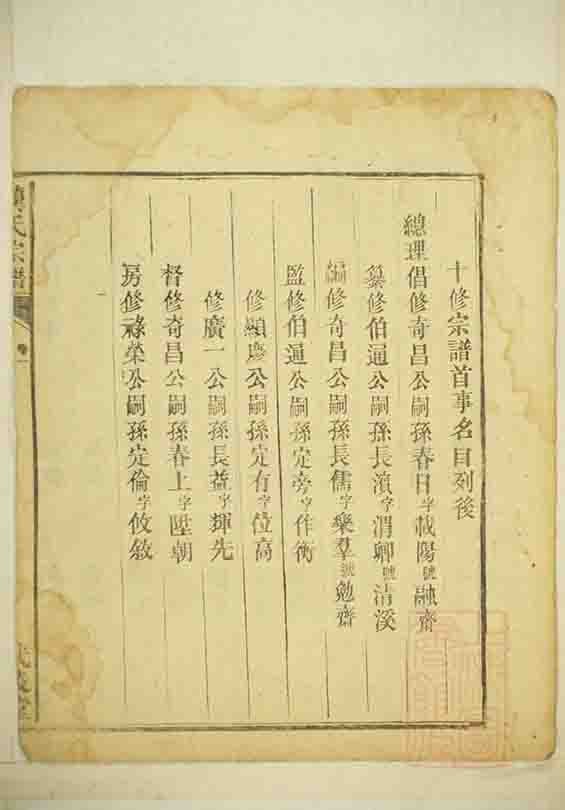 十修宗譜首事名目列後
總理倡修奇昌公嗣孫春日字載陽號融齋
纂修伯通公嗣孫長濱字渭卿號清溪
編修奇昌公嗣孫長儒字樂羣號勉齋
監修伯通公嗣孫定旁字作衡
修顯慶公嗣孫定有字位高
修廣一公嗣孫長益字輝先
督修奇昌公嗣孫春上字陞朝
房修祿榮公嗣孫定倫字攸敘
氏宗譜
卷一